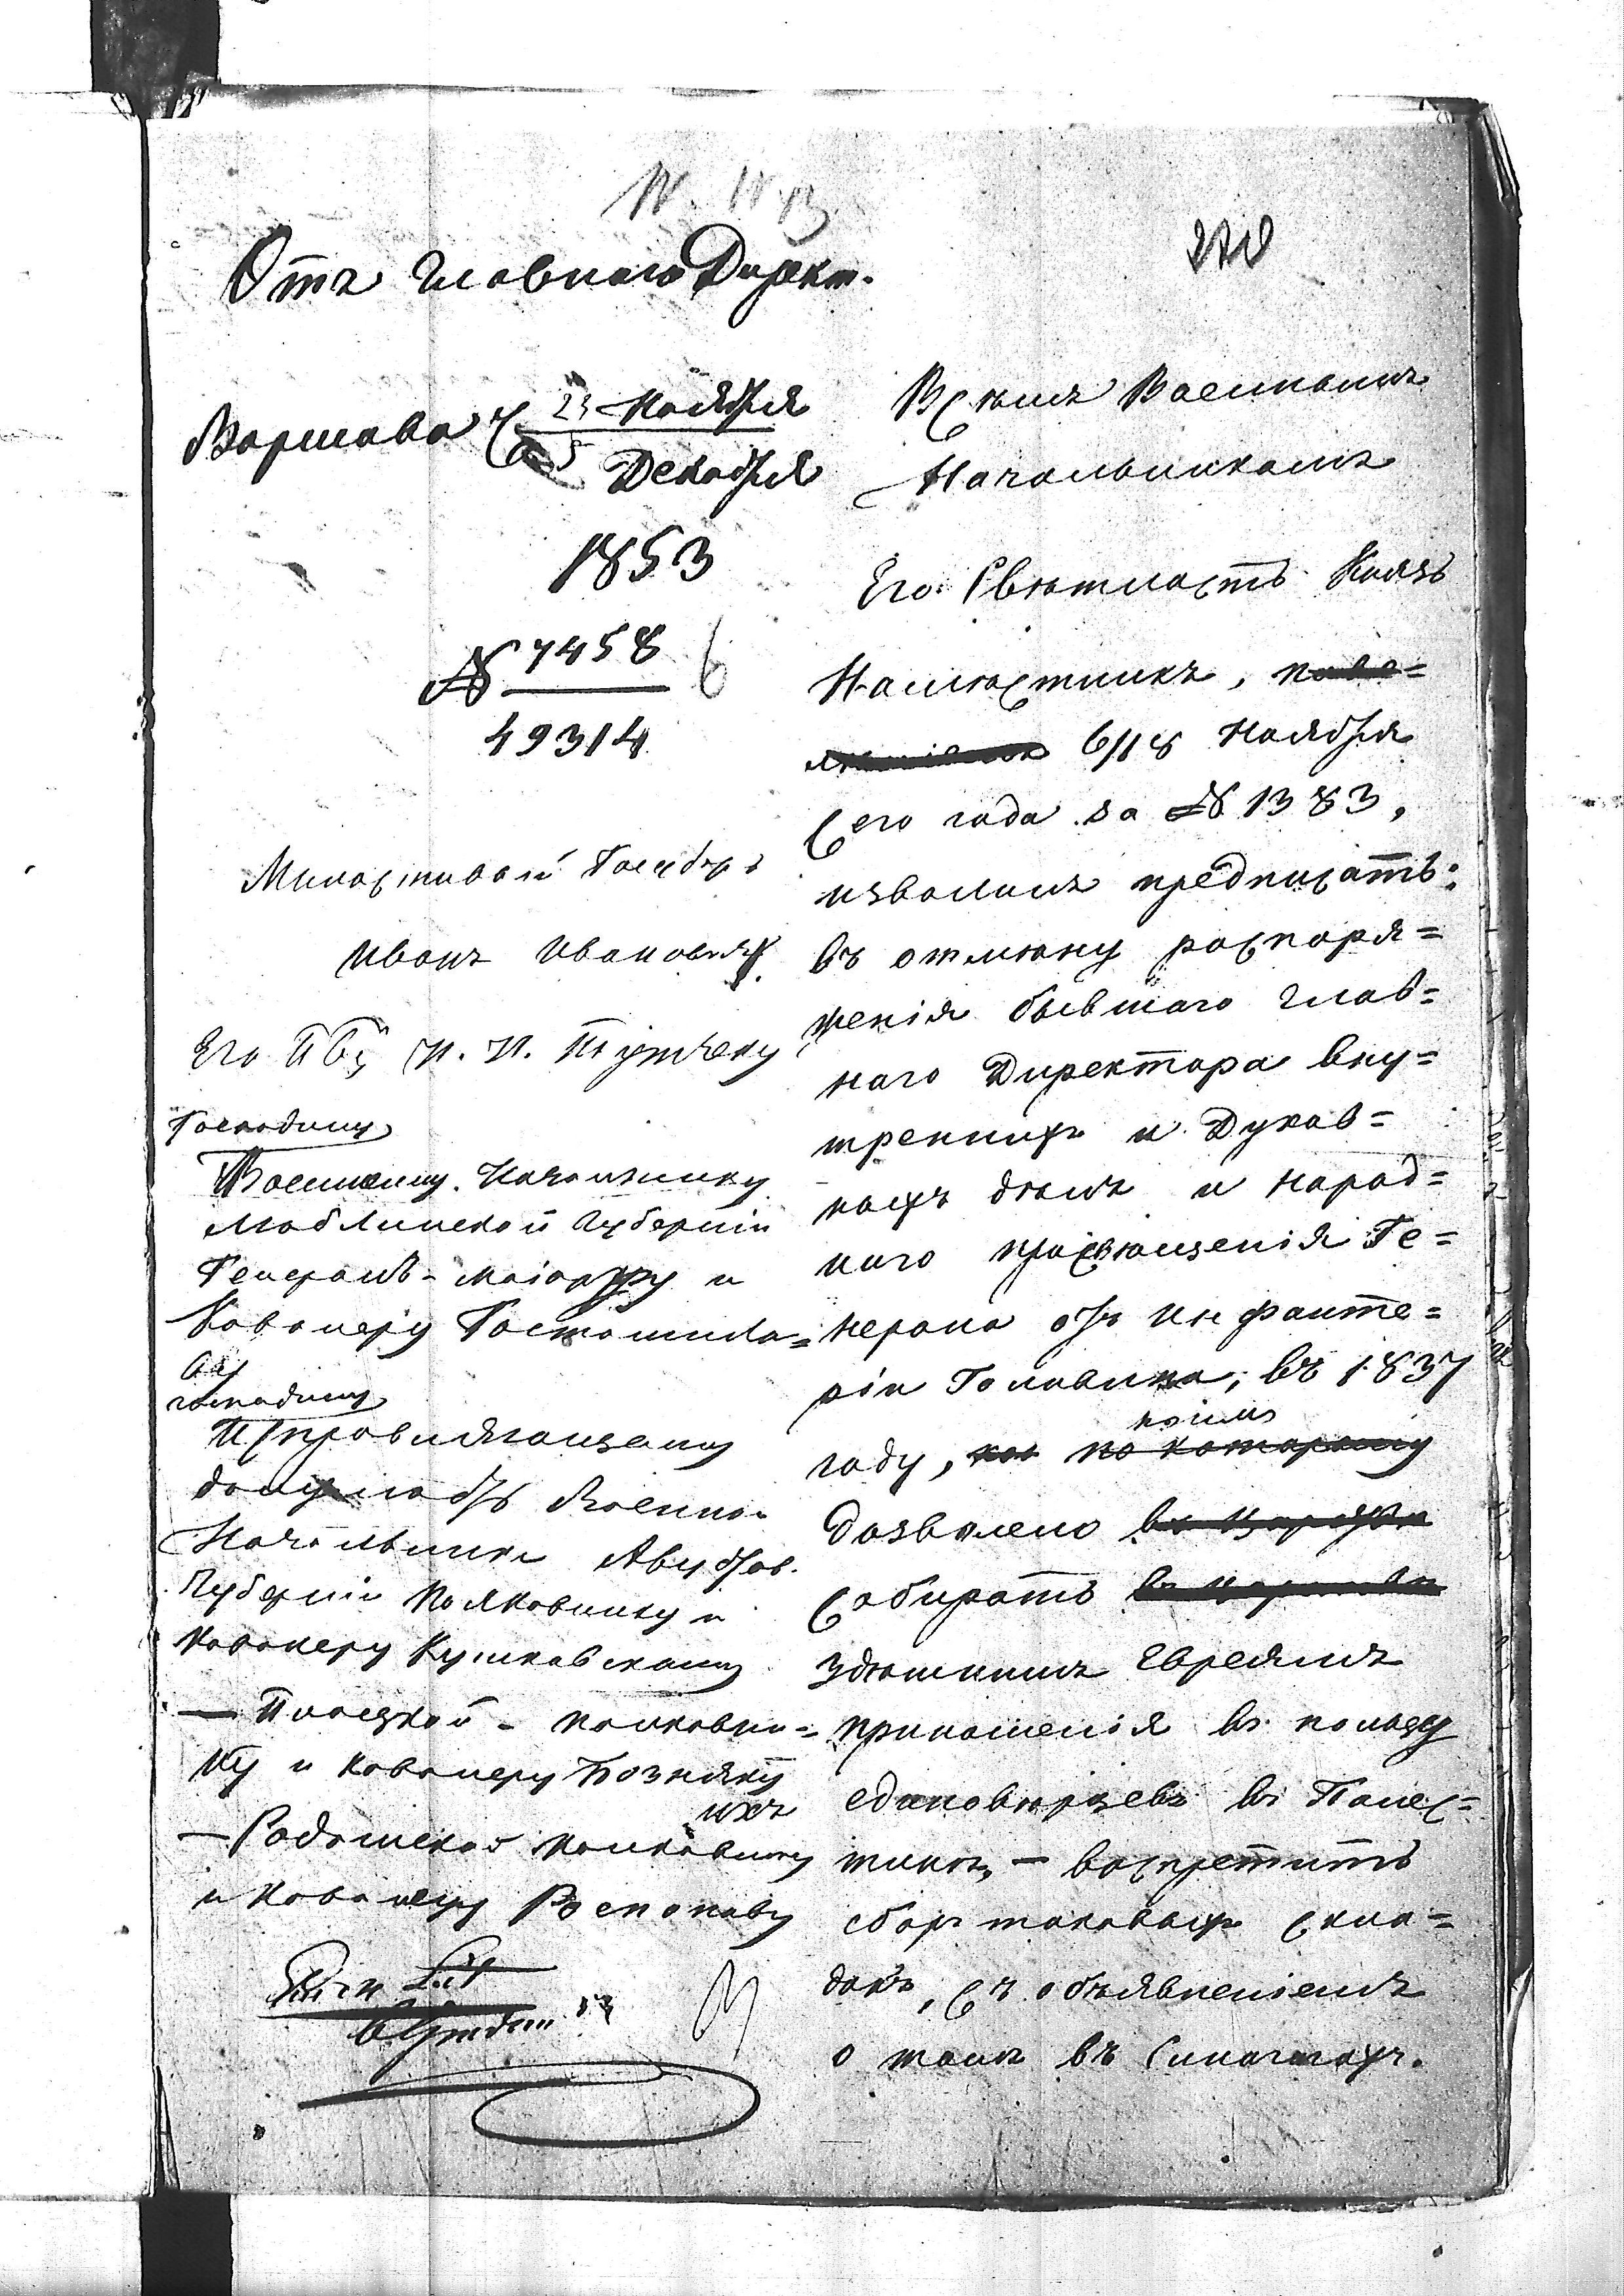 Отъ Главнаго Директ.
270
Варшава 23 Ноября
5 Декабря
1853
№ 7458
49314
Милостивый Государь
Иванъ Ивановичъ.
Его П И. И.
Господину
Военному Начальнику
Люблинской Губерніи
Генералъ-маіору и
Кавалеру
Господину
Исправляющему
должность Военн.
Начальника Августов.
Губерніи Полковнику и
Кавалеру
— Плоцкой - полковни=
ку и Кавалеру
— Радомской полковнику
и Кавалеру
Всѣмъ Военнымъ
Начальникамъ
Его Свѣтлость Князь
Намѣстникъ, пове=
6/18 Ноября
сего года за № 1383,
изволилъ предписать:
въ отмѣну распоря=
женія бывшаго Глав=
наго Директора Вну=
треннихъ и Духов=
ныхъ дѣлъ и народ=
наго просвѣщенія Ге=
нерала отъ Инфанте=
ріи Головина, въ 1837
коимъ
году, по которому
дозволено
собирать
здѣшнимъ Евреямъ
приношенія въ пользу
единовѣрцевъ въ Палес=
тинѣ, — воспретить
сборъ таковыхъ скла=
докъ, съ объявленіемъ
о томъ въ Синагогахъ.